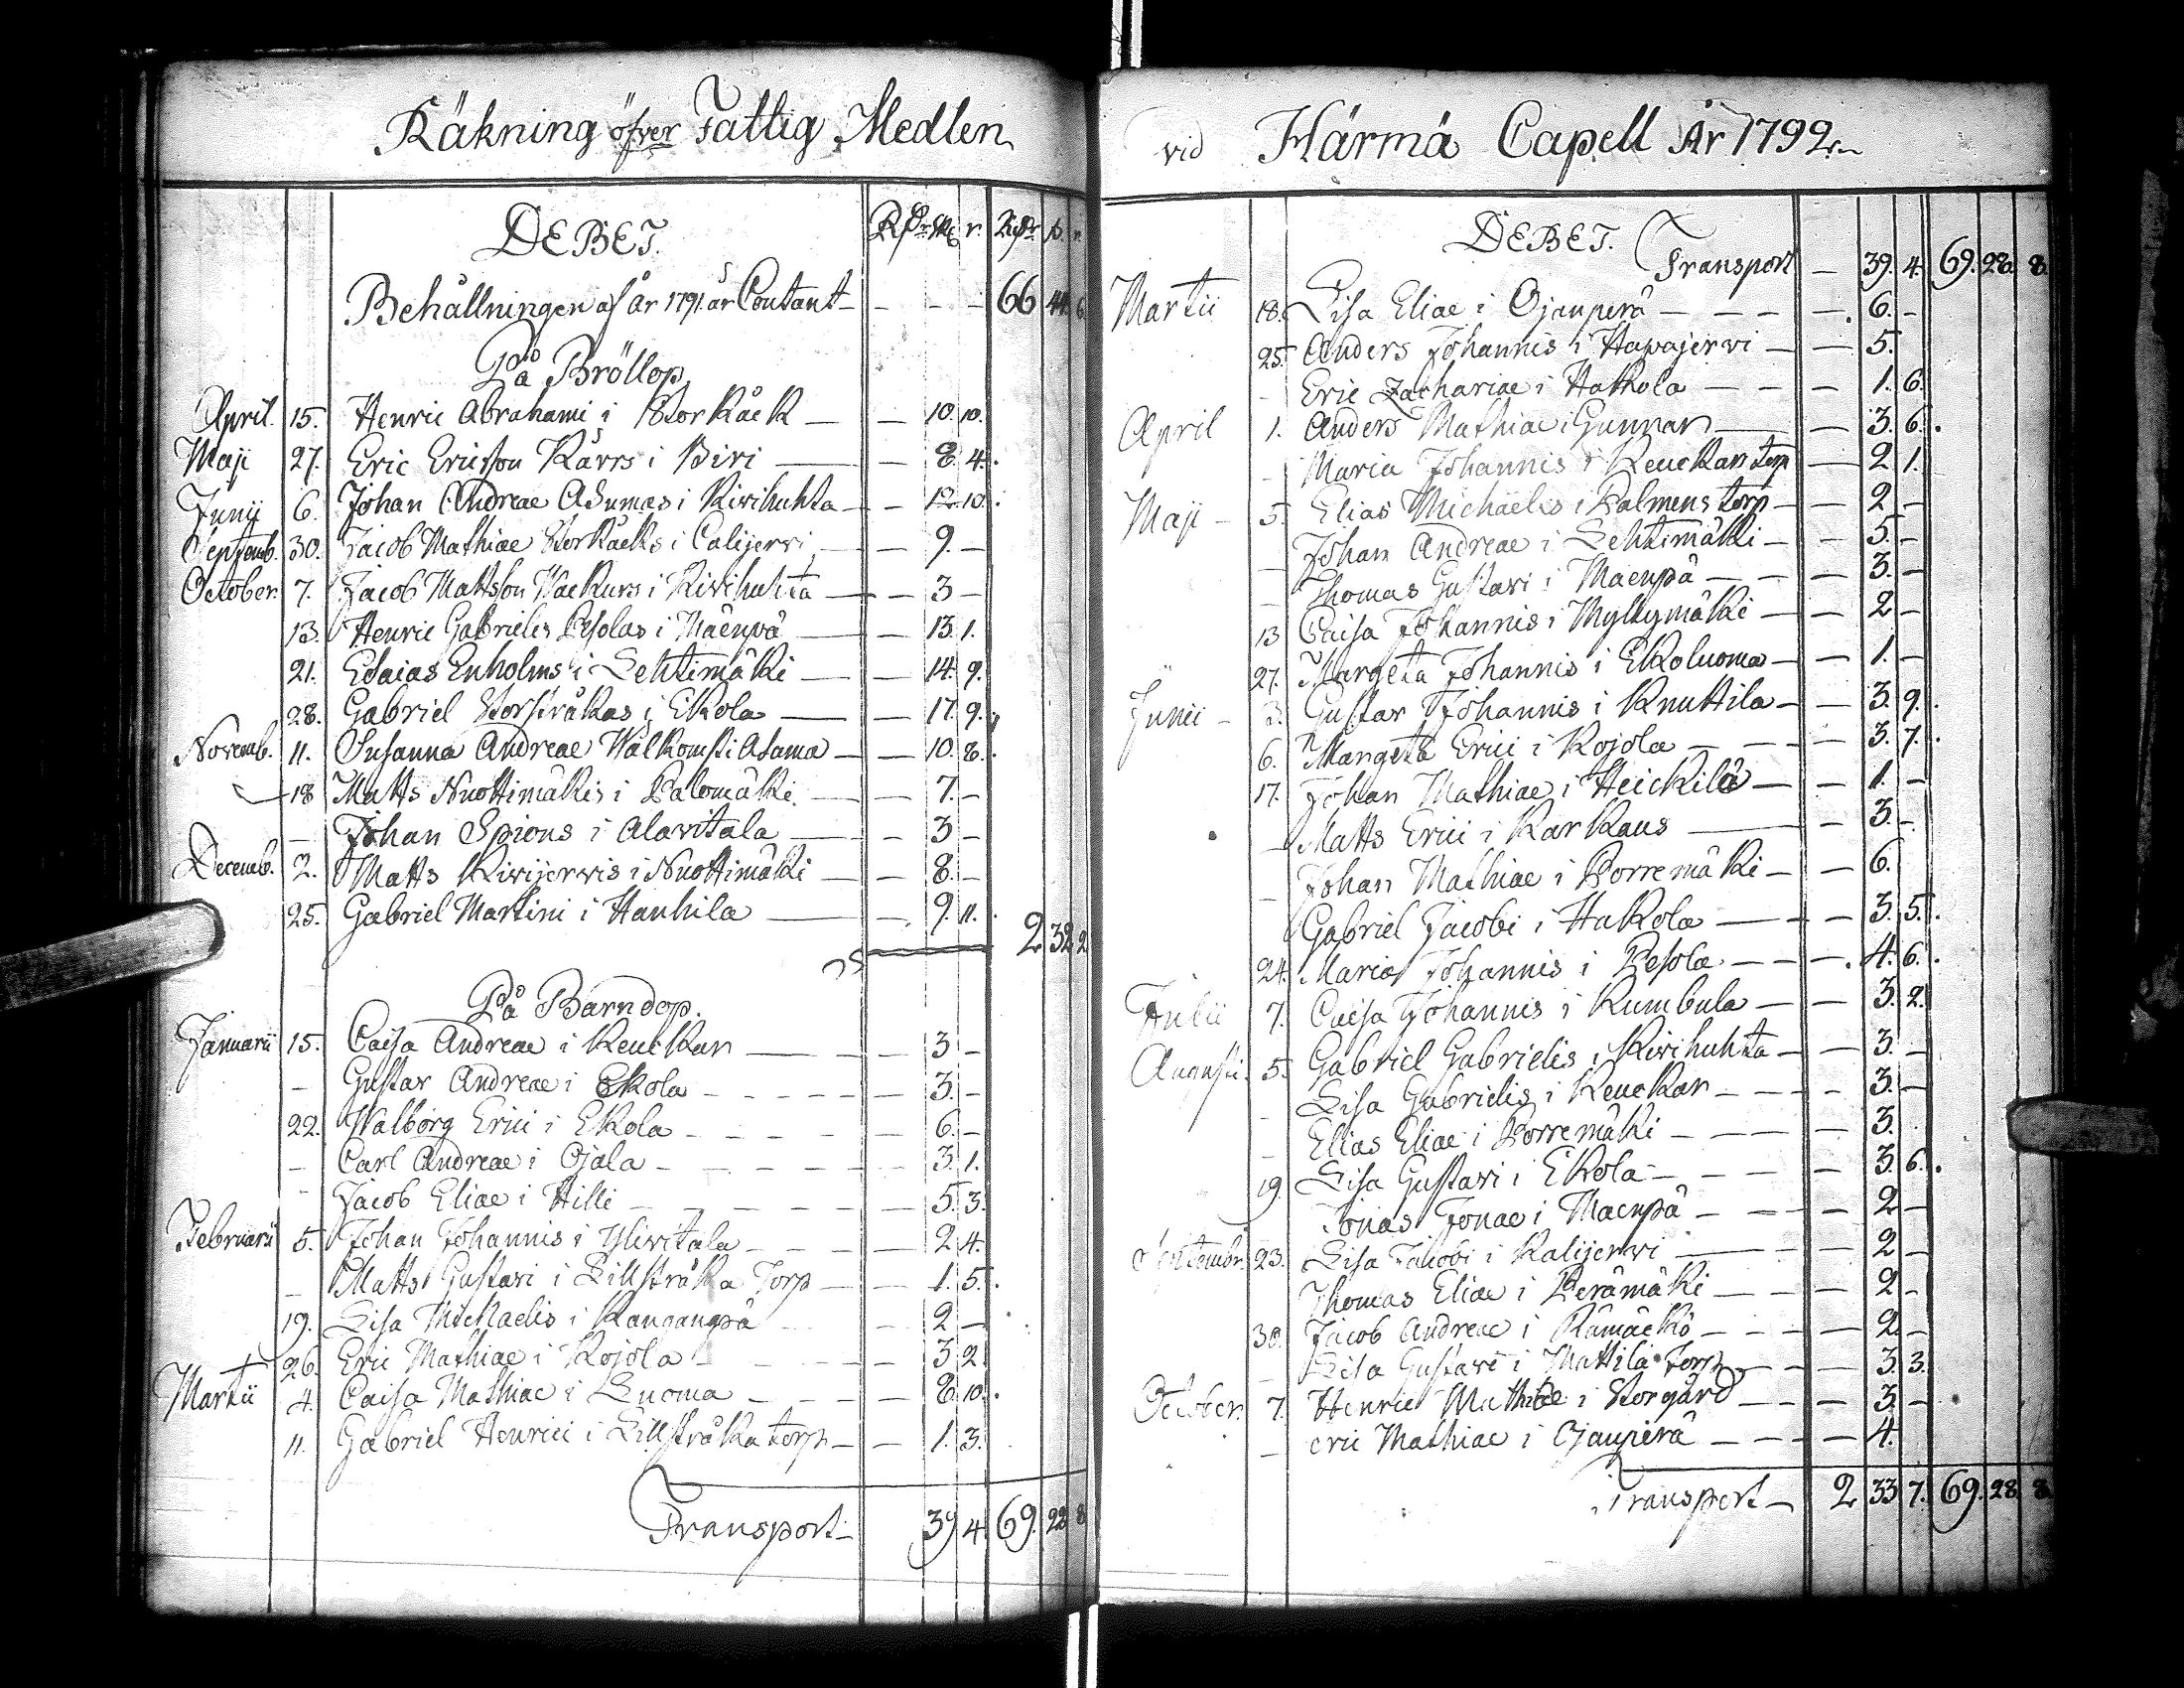 Räkning öfver Fattig Medlen
DEBET. RDr sk r. RDr s. r.
Behållningen af år 1791. är Contant - - - 66 44. 6.
På Bröllop
April. 15. Henric Abrahami i Storkåck - - 10. 10.
Maji 27. Eric Ericsson Kärrs i Biri - - 8. 4.
Junij 6. Johan Andreae Asumas i Kivihuhta - - 12 10.
Septemb. 30. Jacob Mathiae Storkåcks i Calijervi - - 9. -
October. 7. Jacob Mattsson Wackurs i Kivihuhta - - 3 -
13. Henric Gabrielis Pesolas i Mäenpä - - 13. 1.
21. Esaias Enholms i Lehtimäki - - 14. 9.
28. Gabriel Storstråkas i Ekola - - 17. 9.
Novemb. 11. Susanna Andreae Walkom i Asama - - 10. 8.
18 Matts Nuottimäkis i Palomäki - - 7. -
- Johan Spions i Alavitala - - 3 -
Decemb. 2. Matts Kivijervis i Nuottimäki - - 8. -
25. Gabriel Martini i Hanhila - - 9. 11. 2 32 2
På Barndop.
Januarii 15. Caisa Andreae i Keuckan - - 3 -
- Gustav Andreae i Ekola - - - - - 3. -
22. Walborg Erici i Ekola - - - - - 6. -
- Carl Andreae i Ojala - - - - - 3. 1.
- Jacob Eliae i Hilli - - - - - 5. 3.
Februarii 5. Johan Johannis i Yliwitala - - - - 2 4.
- Matts Gustavi i Lillstråka Torp - - 1. 5.
19. Lisa Michaelis i Kangangpä - 2 -
26. Eric Mathiae i Kojola - - - - 3 2
Martii 4. Caisa Mathiae i Luoma - - - - 8 10.
11. Gabriel Henrici i Lillstråka torp - - 1. 3.
Transport - 39 4. 69. 28 8
vid Härmä Capell År 1792.
DEBET.
Transport - 39. 4. 69. 28. 8.
Martii 18. Lisa Eliae i Ojanperä - - - - 6. -
25. Anders Johannis i Havajervi - - 5.
- Eric Zachariae i Hakkola - - - 1. 6.
April 1. Anders Mathiae i Gunnar - - 3. 6.
- Maria Johannis i Keuckan torp - 2 1.
Maji - 5. Elias Michaelis i Palmens torp - - 2 -
- Johan Andreae i Lehtimäki - - 5. -
- Thomas Gustavi i Maenpä - - - 3. -
13 Caisa Johannis i Myllymäki - - 2 -
27. Margeta Johannis i Ekoluoma - - 1. -
Junii - 3. Gustav Johannis i Knuttila - - 3. 9.
6. Margeta Erici i Kojola - - - - 3. 7.
17. Johan Mathiae i Heickilä - - 1. -
- Matts Erici i Karkaus - - 3. -
- Johan Mathiae i Porremäki - - 6.
Gabriel Jacobi i Hakola - - - 3. 5.
24. Maria Johannis i Pesola - - - 4. 6.
Julii 7. Caisa Johannis i Rumbula - - 3. 2.
Augusti. 5. Gabriel Gabrielis i Kivihuhta - - 3. -
- Lisa Gabrielis i Keuckan - - - - 3. -
- Elias Eliae i Porremäki - - - - 3.
19. Lisa Gustavi i Ekola - - - - - 3. 6.
Jonas Jonae i Maenpä - - - - 2 -
Septembr. 23. Lisa Jacobi i Kalijervi - - - 2 -
Thomas Eliae i Perämäki - - - 2 -
30. Jacob Andreae i Rämäckö - - - - 2 -
- Lisa Gustavi i Mattila Torp - - - 3. 3.
October. 7. Henric Mathiae i Storgård - - - 3. -
- eric Mathiae i Ojanperä - - - - 4.
Transport - 2 33 7. 69. 28. 8